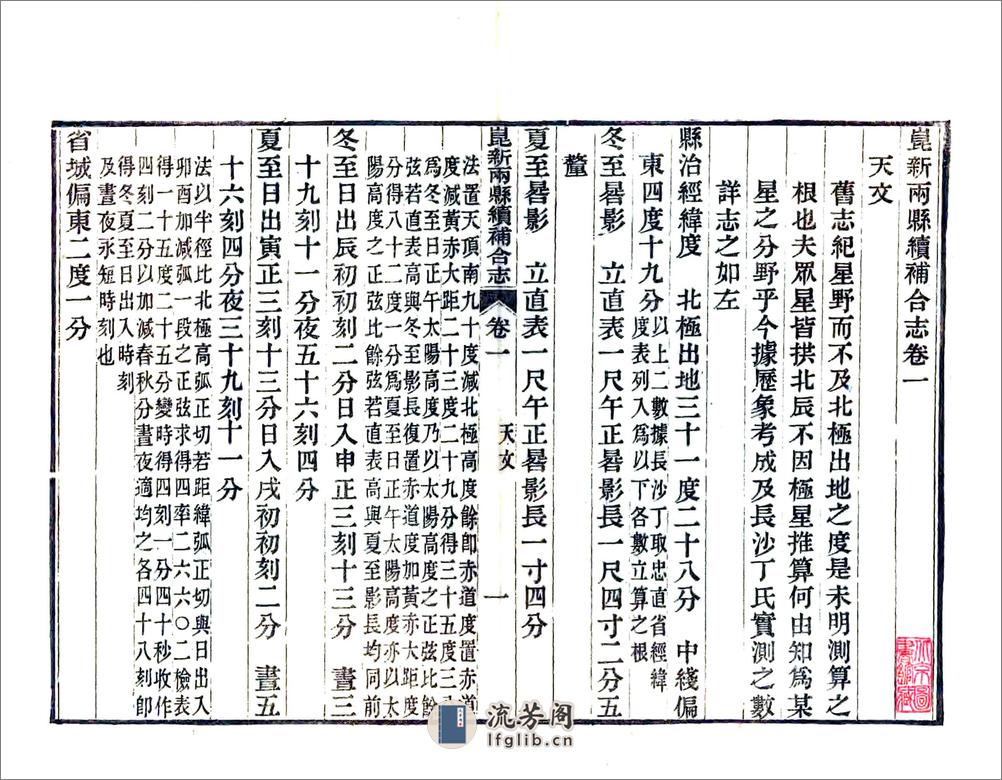 崑新兩縣續補合志卷一
天文
舊志紀星野而不及北極出地之度是未明測算之
根也夫眾星皆拱北辰不因極星推算何由知為某
星之分野乎今據歷象考成及長沙丁氏實測之數
詳志之如左
縣治經緯度　北極出地三十一度二十八分　中綫偏
東四度十九分以上二數據長沙丁取忠直省經緯
度表列入為以下各數立算之根
冬至晷影　立直表一尺午正晷影長一尺四寸二分五
釐
夏至晷影　立直表一尺午正晷影長一寸四分
崑新兩縣續補合志　卷一　天文　一
法置天頂南九十度減北極高度餘即赤道度置赤道
度減黃赤大距二十三度二十九分得三十五度三分
為冬至日正午太陽高度乃以太陽高度之正弦比餘
弦若直表高與冬至影長復置赤道度加黃赤大距度
分得八十二度一分為夏至日正午太陽高度亦以太
陽高度之正弦比餘弦若直表高與夏至影長均同前
冬至日出辰初初刻二分日入申正三刻十三分　晝三
十九刻十一分夜五十六刻四分
夏至日出寅正三刻十三分日入戌初初刻二分　晝五
十六刻四分夜三十九刻十一分
法以半徑比北極高弧正切若距緯弧正切與日出入
卯酉加減弧一段之正弦求得四率二六六〇二檢表
得一十五度二十五分變時得四刻一分四十秒收作
四刻二分以加減春秋分晝夜適均之各四十八刻即
得冬夏至日出入時刻
及晝夜永短時刻也
省城偏東二度一分
流芳阁
lfglib.cn